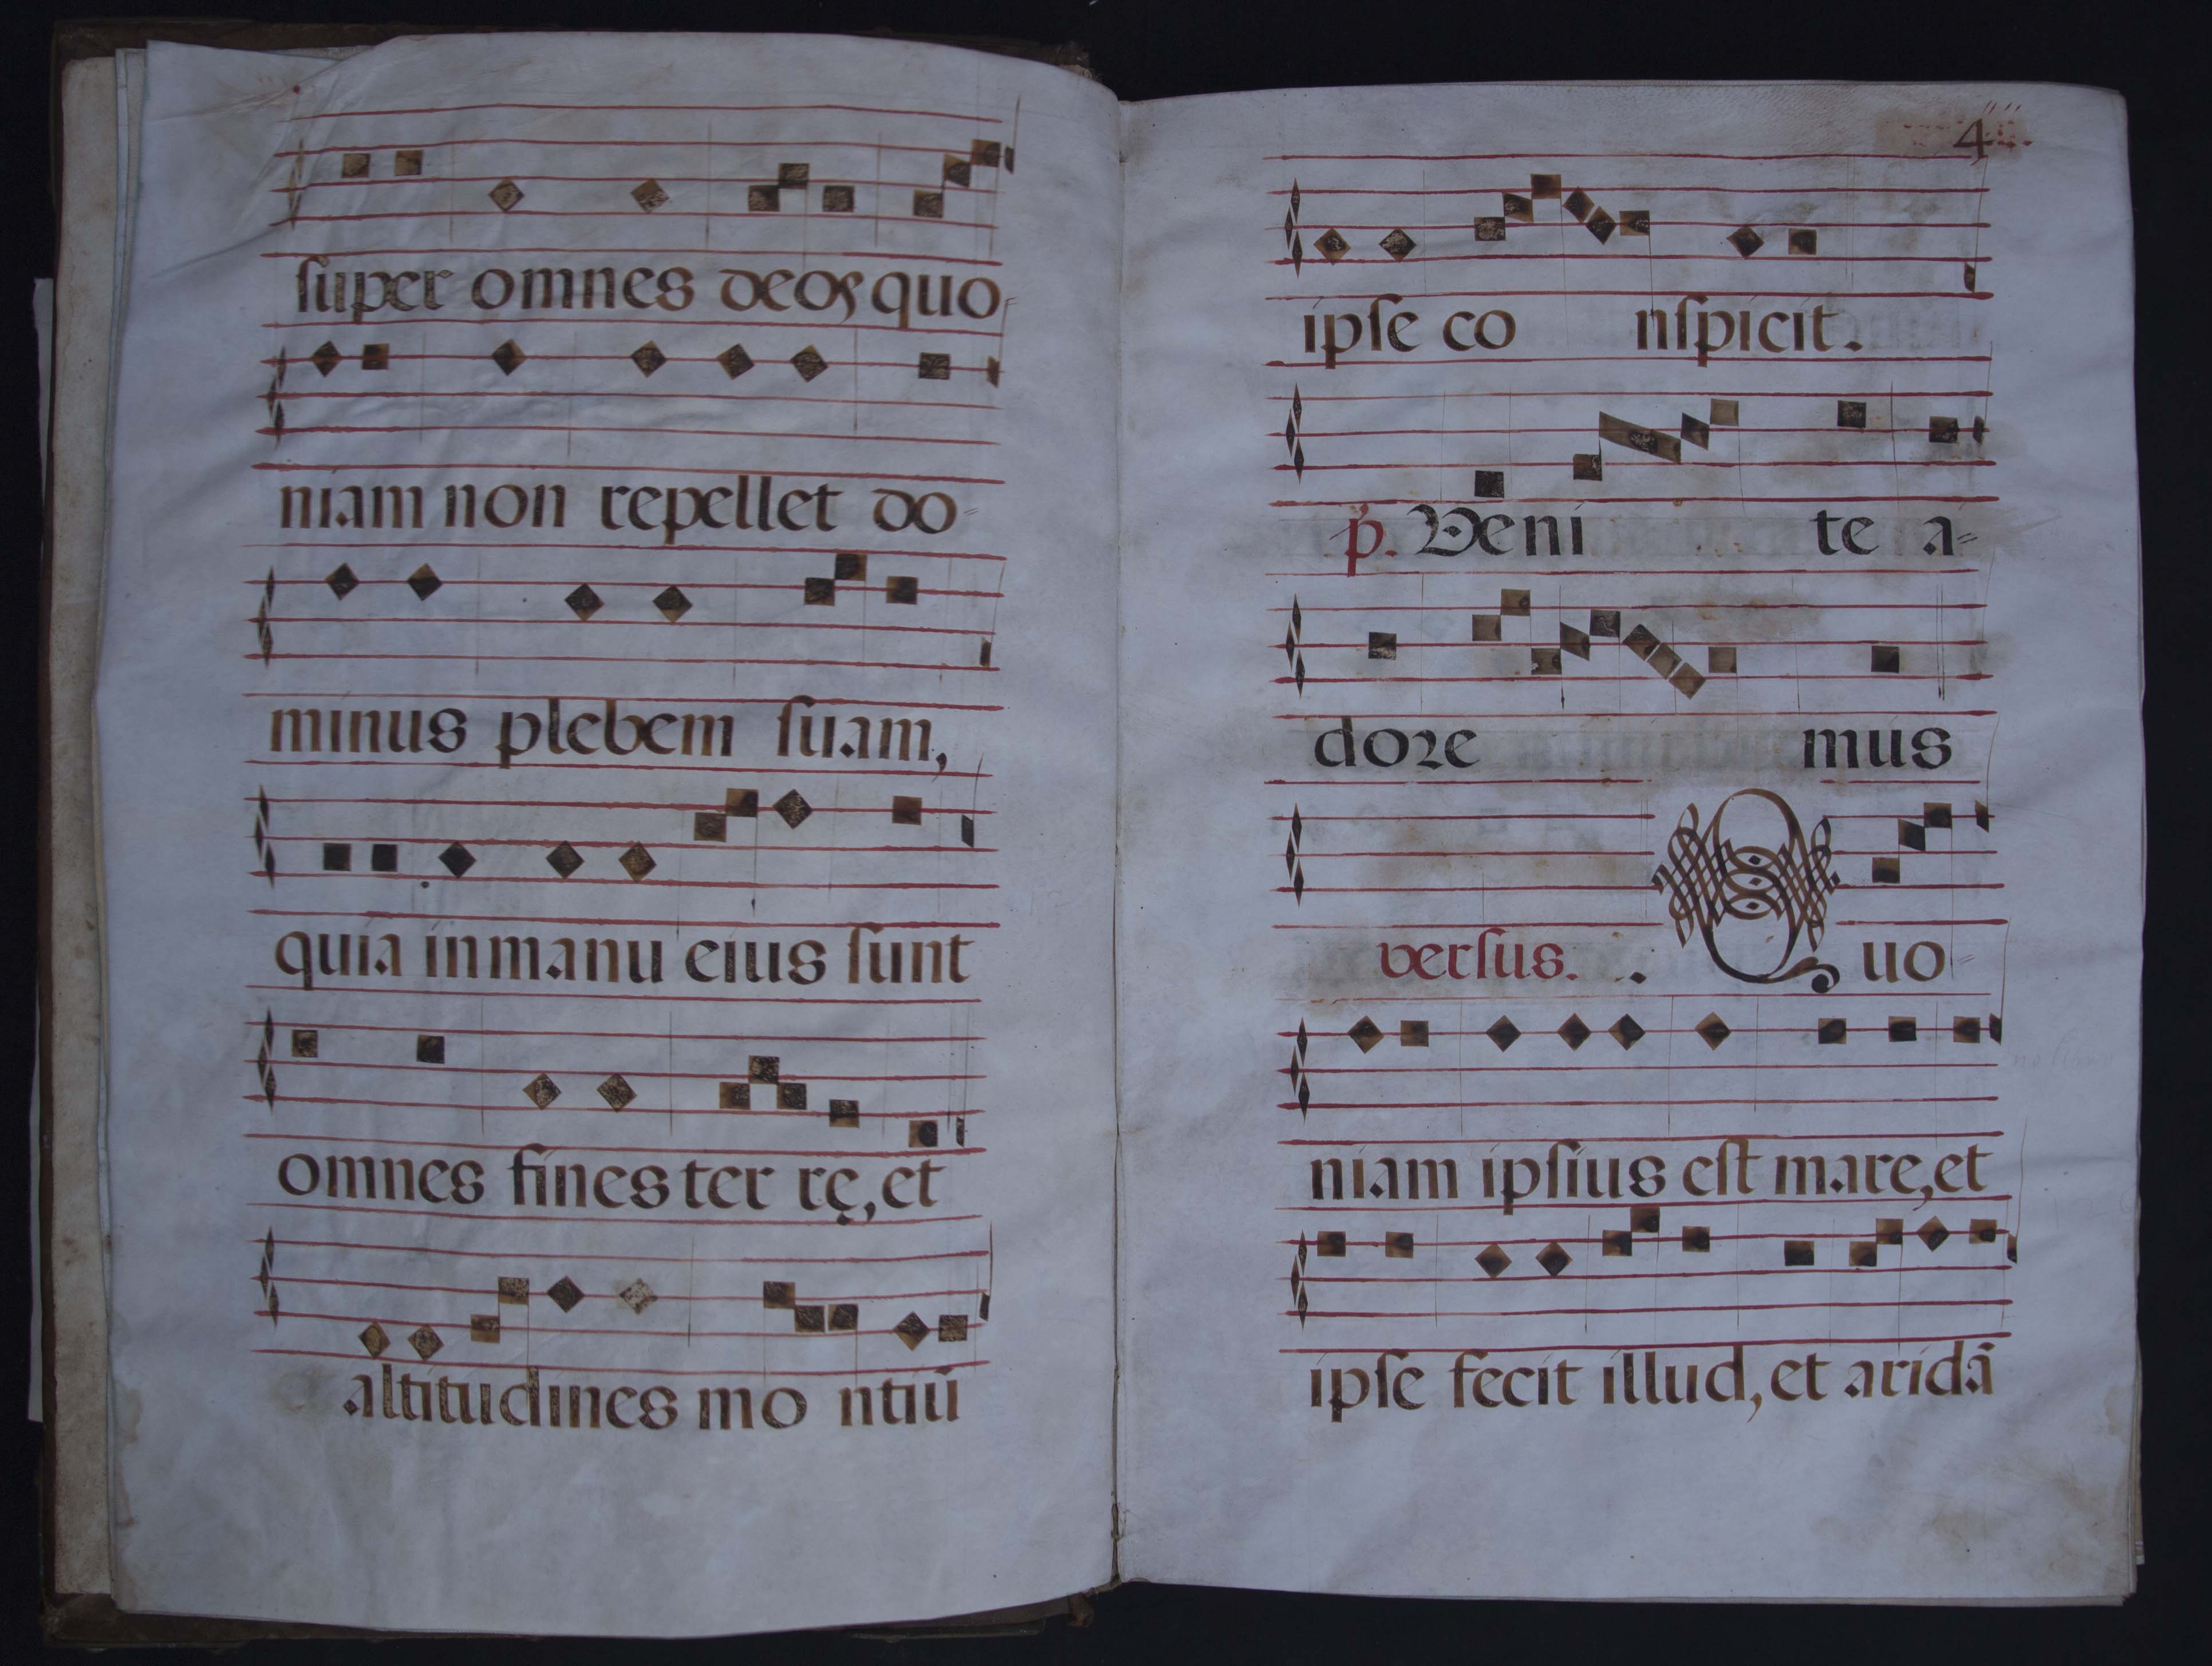 ſuper omnes deos quo-
niam non repellet do-
minus plebem ſuam,
quia in manu eius ſunt
omnes fines ter rę, et
altitudines mo ntiū
4
ipſe co nſpicit.
p. Veni te a-
doꝛe mus
verſus. Quo-
niam ipſius eſt mare, et
ipſe fecit illud, et aridā